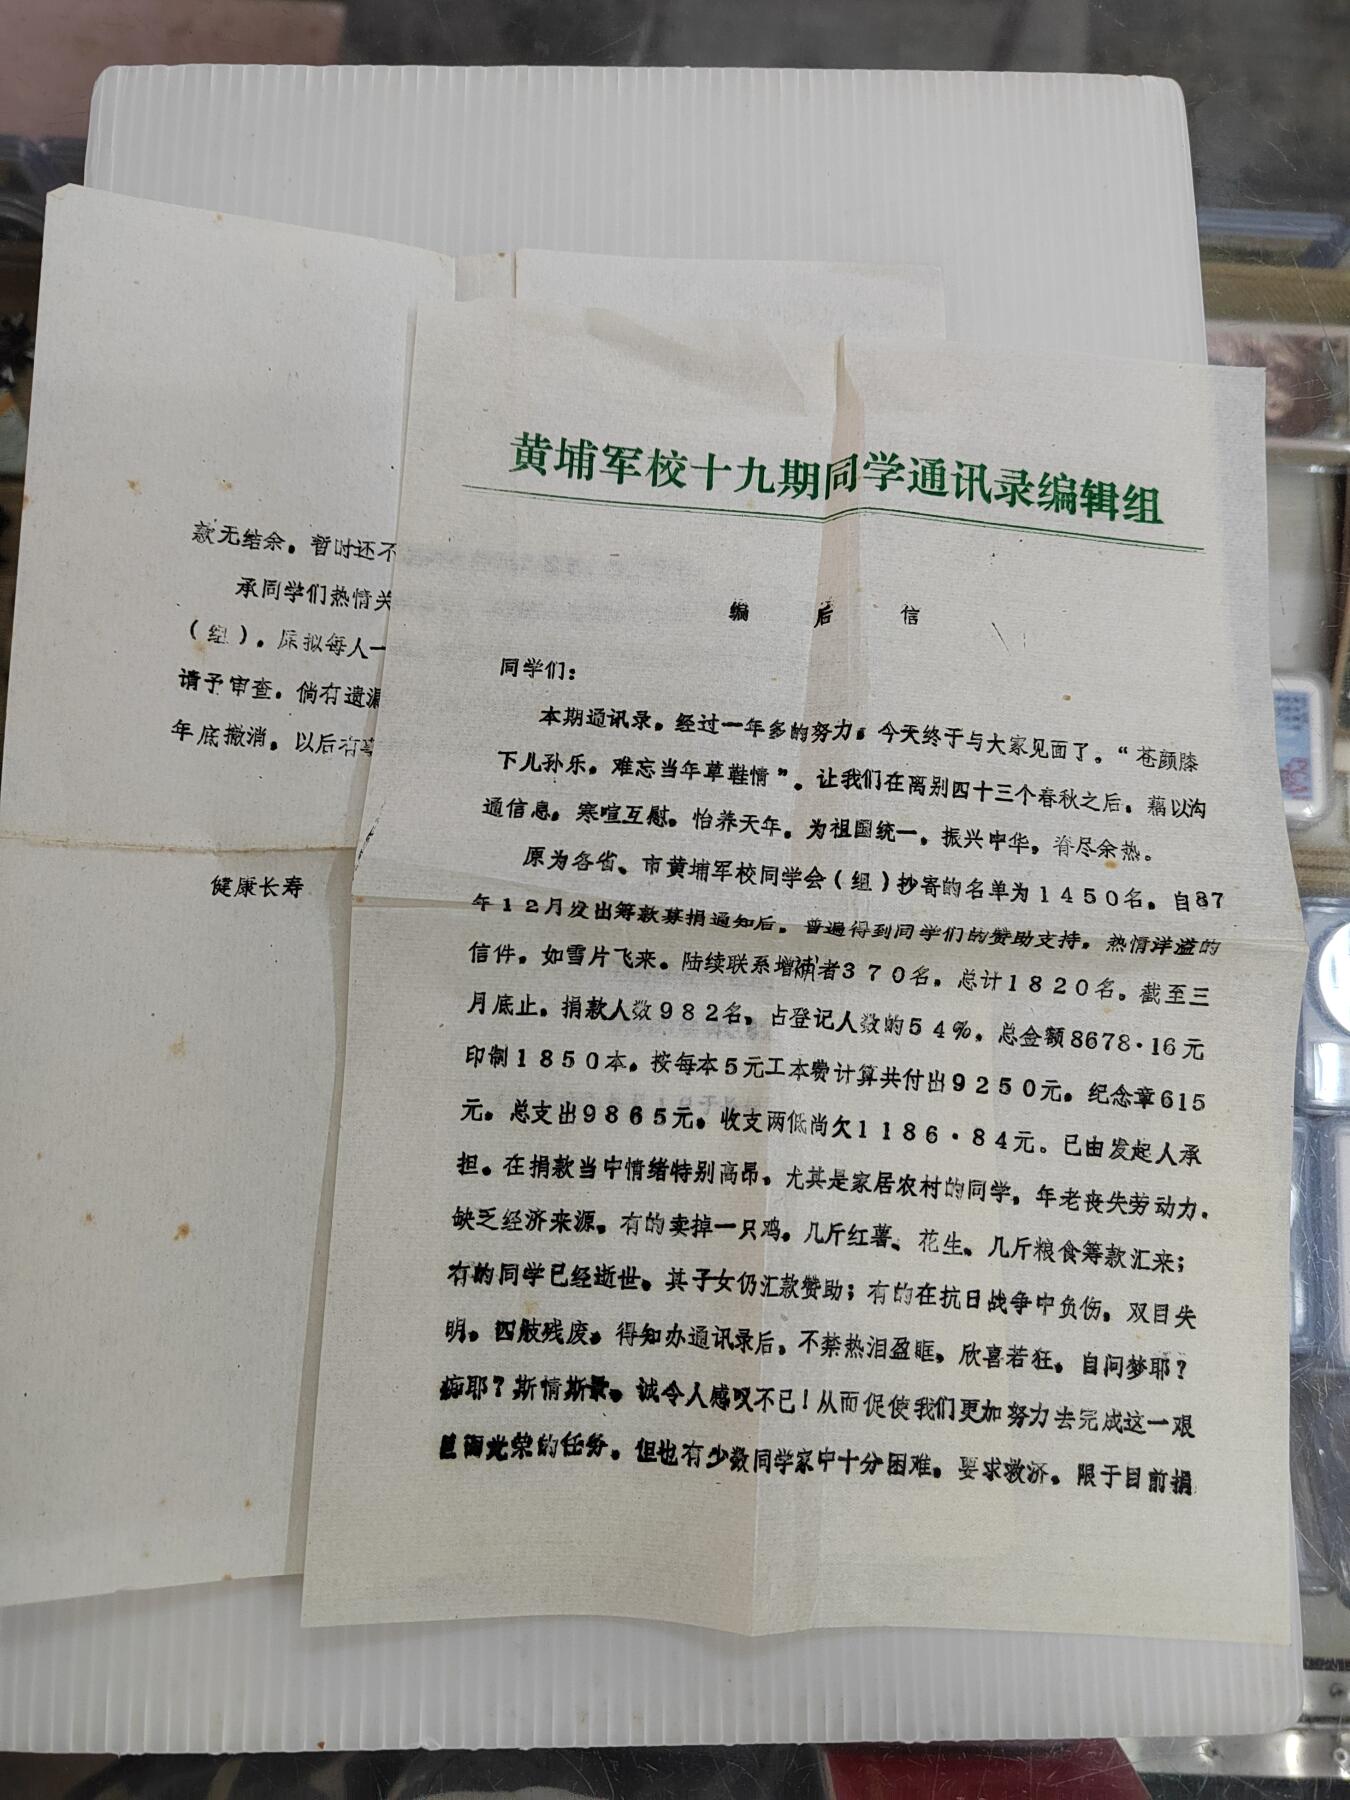 黄埔军校十九期同学通讯录编辑组
编 后 信
同学们：
本期通讯录，经过一年多的努力，今天终于与大家见面了。“苍颜膝
下儿孙乐，难忘当年草鞋情”。让我们在离别四十三个春秋之后，藉以沟
通信息，寒喧互慰，怡养天年，为祖国统一，振兴中华，眷尽余热。
原为各省、市黄埔军校同学会（组）抄寄的名单为1450名，自87
年12月发出筹款募捐通知后，普遍得到同学们的赞助支持，热情洋溢的
信件，如雪片飞来。陆续联系增补者370名，总计1820名。截至三
月底止，捐款人数982名，占登记人数的54%，总金额8678·16元
印制1850本，按每本5元工本费计算共付出9250元。纪念章615
元。总支出9865元。收支两低尚欠1186·84元。已由发起人承
担。在捐款当中情绪特别高昂，尤其是家居农村的同学，年老丧失劳动力，
缺乏经济来源，有的卖掉一只鸡，几斤红薯、花生、几斤粮食筹款汇来；
有的同学已经逝世，其子女仍汇款赞助；有的在抗日战争中负伤，双目失
明，四肢残废，得知办通讯录后，不禁热泪盈眶，欣喜若狂，自问梦耶？
耶？斯情斯景，诚令人感叹不已！从而促使我们更加努力去完成这一艰
巨而光荣的任务。但也有少数同学家中十分困难，要求救济，限于目前捐
款无结余，暂时还不
承同学们热情关
（组）。原拟每人一
请予审查，倘有遗漏
年底撤消，以后有事
健康长寿